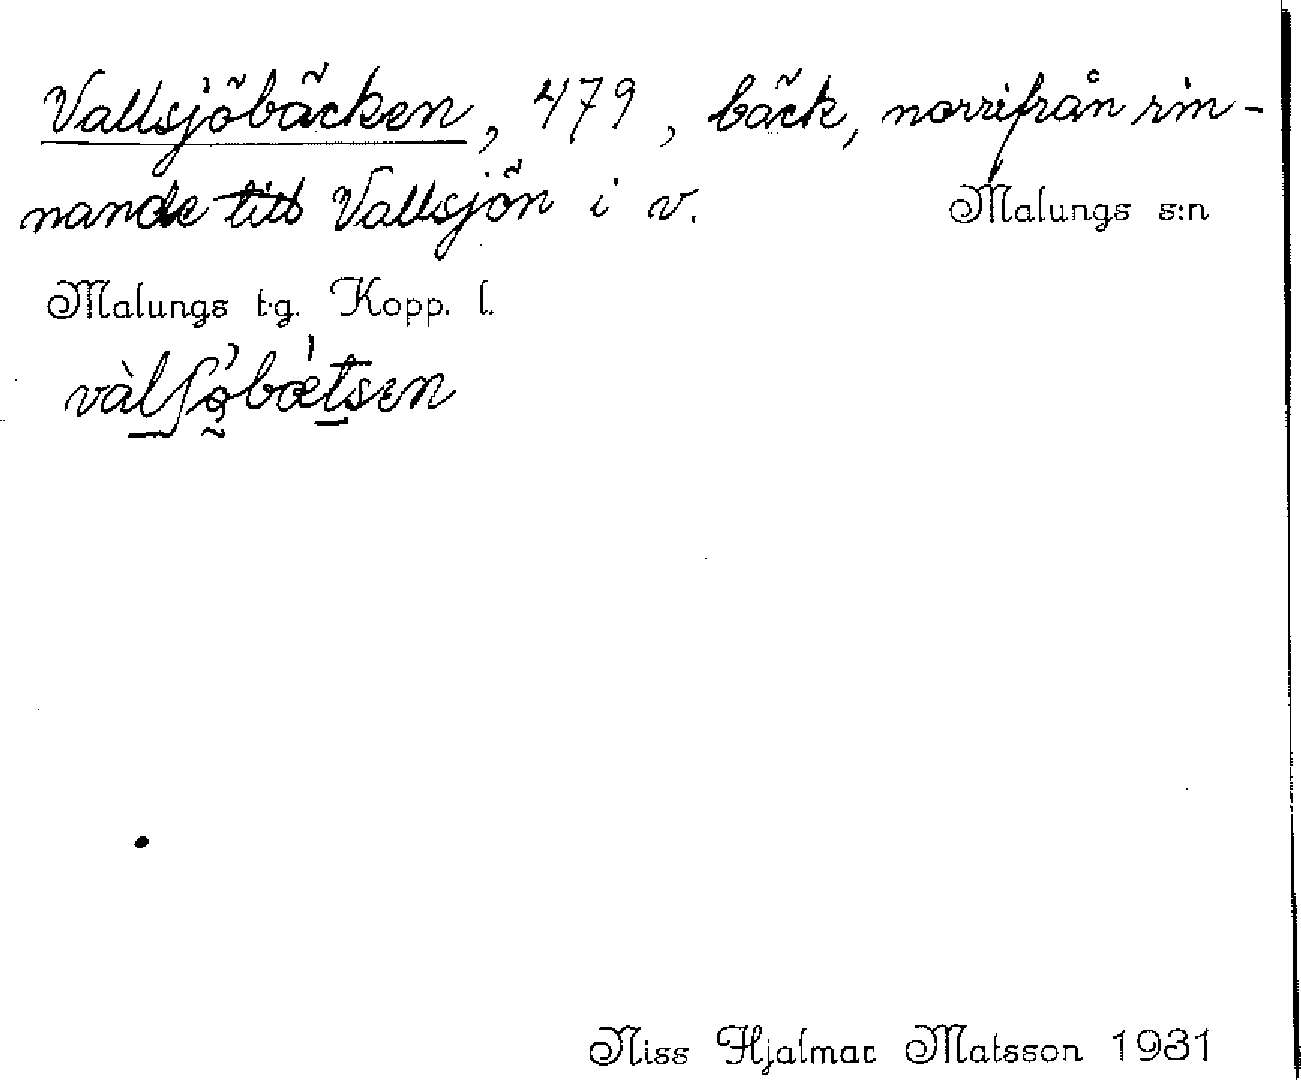 Vallsjöbäcken, 479, bäck, norrifrån rin-
nande till Vallsjön i v. Malungs s:n
Malungs t.g. Kopp. l.
vàlʃö́bǽtsen
Niss Hjalmar Matsson 1931